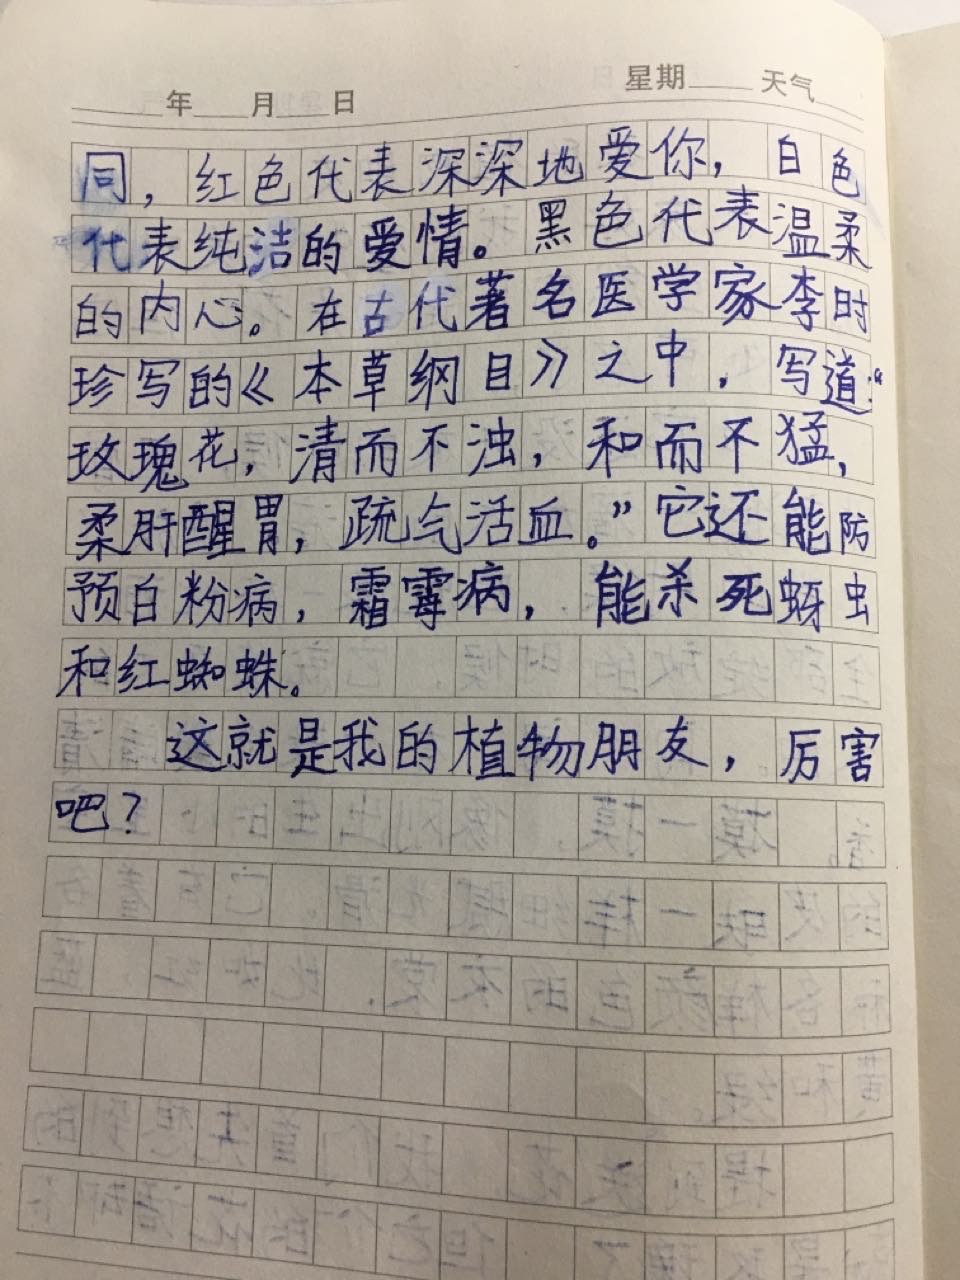 年 月 日 星期 天气
同，红色代表深深地爱你，白色
代表纯洁的爱情。黑色代表温柔
的内心。在古代著名医学家李时
珍写的《本草纲目》之中，写道：“
玫瑰花，清而不浊，和而不猛，
柔肝醒胃，疏气活血。”它还能防
预白粉病，霜霉病，能杀死蚜虫
和红蜘蛛。
这就是我的植物朋友，厉害
吧？